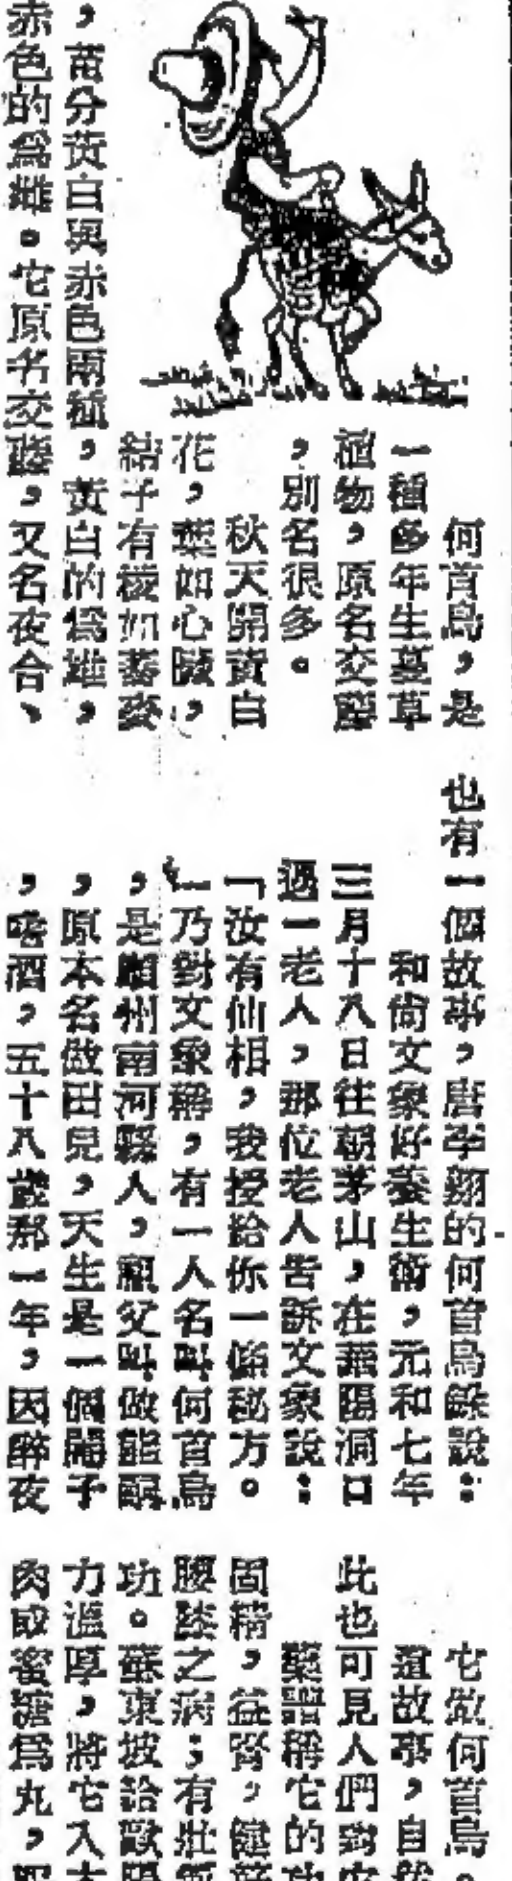 何首烏，是
一種多年生蔓草
植物，原名交藤
，別名很多。
秋天開黃白
花，葉如心臟，
結子有稜如蕎麥
，苗分黃白與赤色兩種，黃白的為雄，
赤色的為雌。它原名交藤，又名夜合、
也有一個故事，唐李翱的何首烏錄說：
和尙文象好養生術，元和七年
三月十八日往朝茅山，在華陽洞口
遇一老人，那位老人告訴文象說：
「汝有仙相，我授給你一條秘方。
」乃對文象稱，有一人名叫何首烏
，是順州南河縣人，祖父叫做能嗣
，原本名做田兒，天生是一個閹子
，嗜酒，五十八歲那一年，因醉夜
它做何首烏。
這故事，自然
此也可見人們對
藥譜稱它的功
固精，益腎，健筋
腰膝之病；有壯
功。蘇東坡給歐陽
力溫厚，將它入
肉或蜜糖為丸，